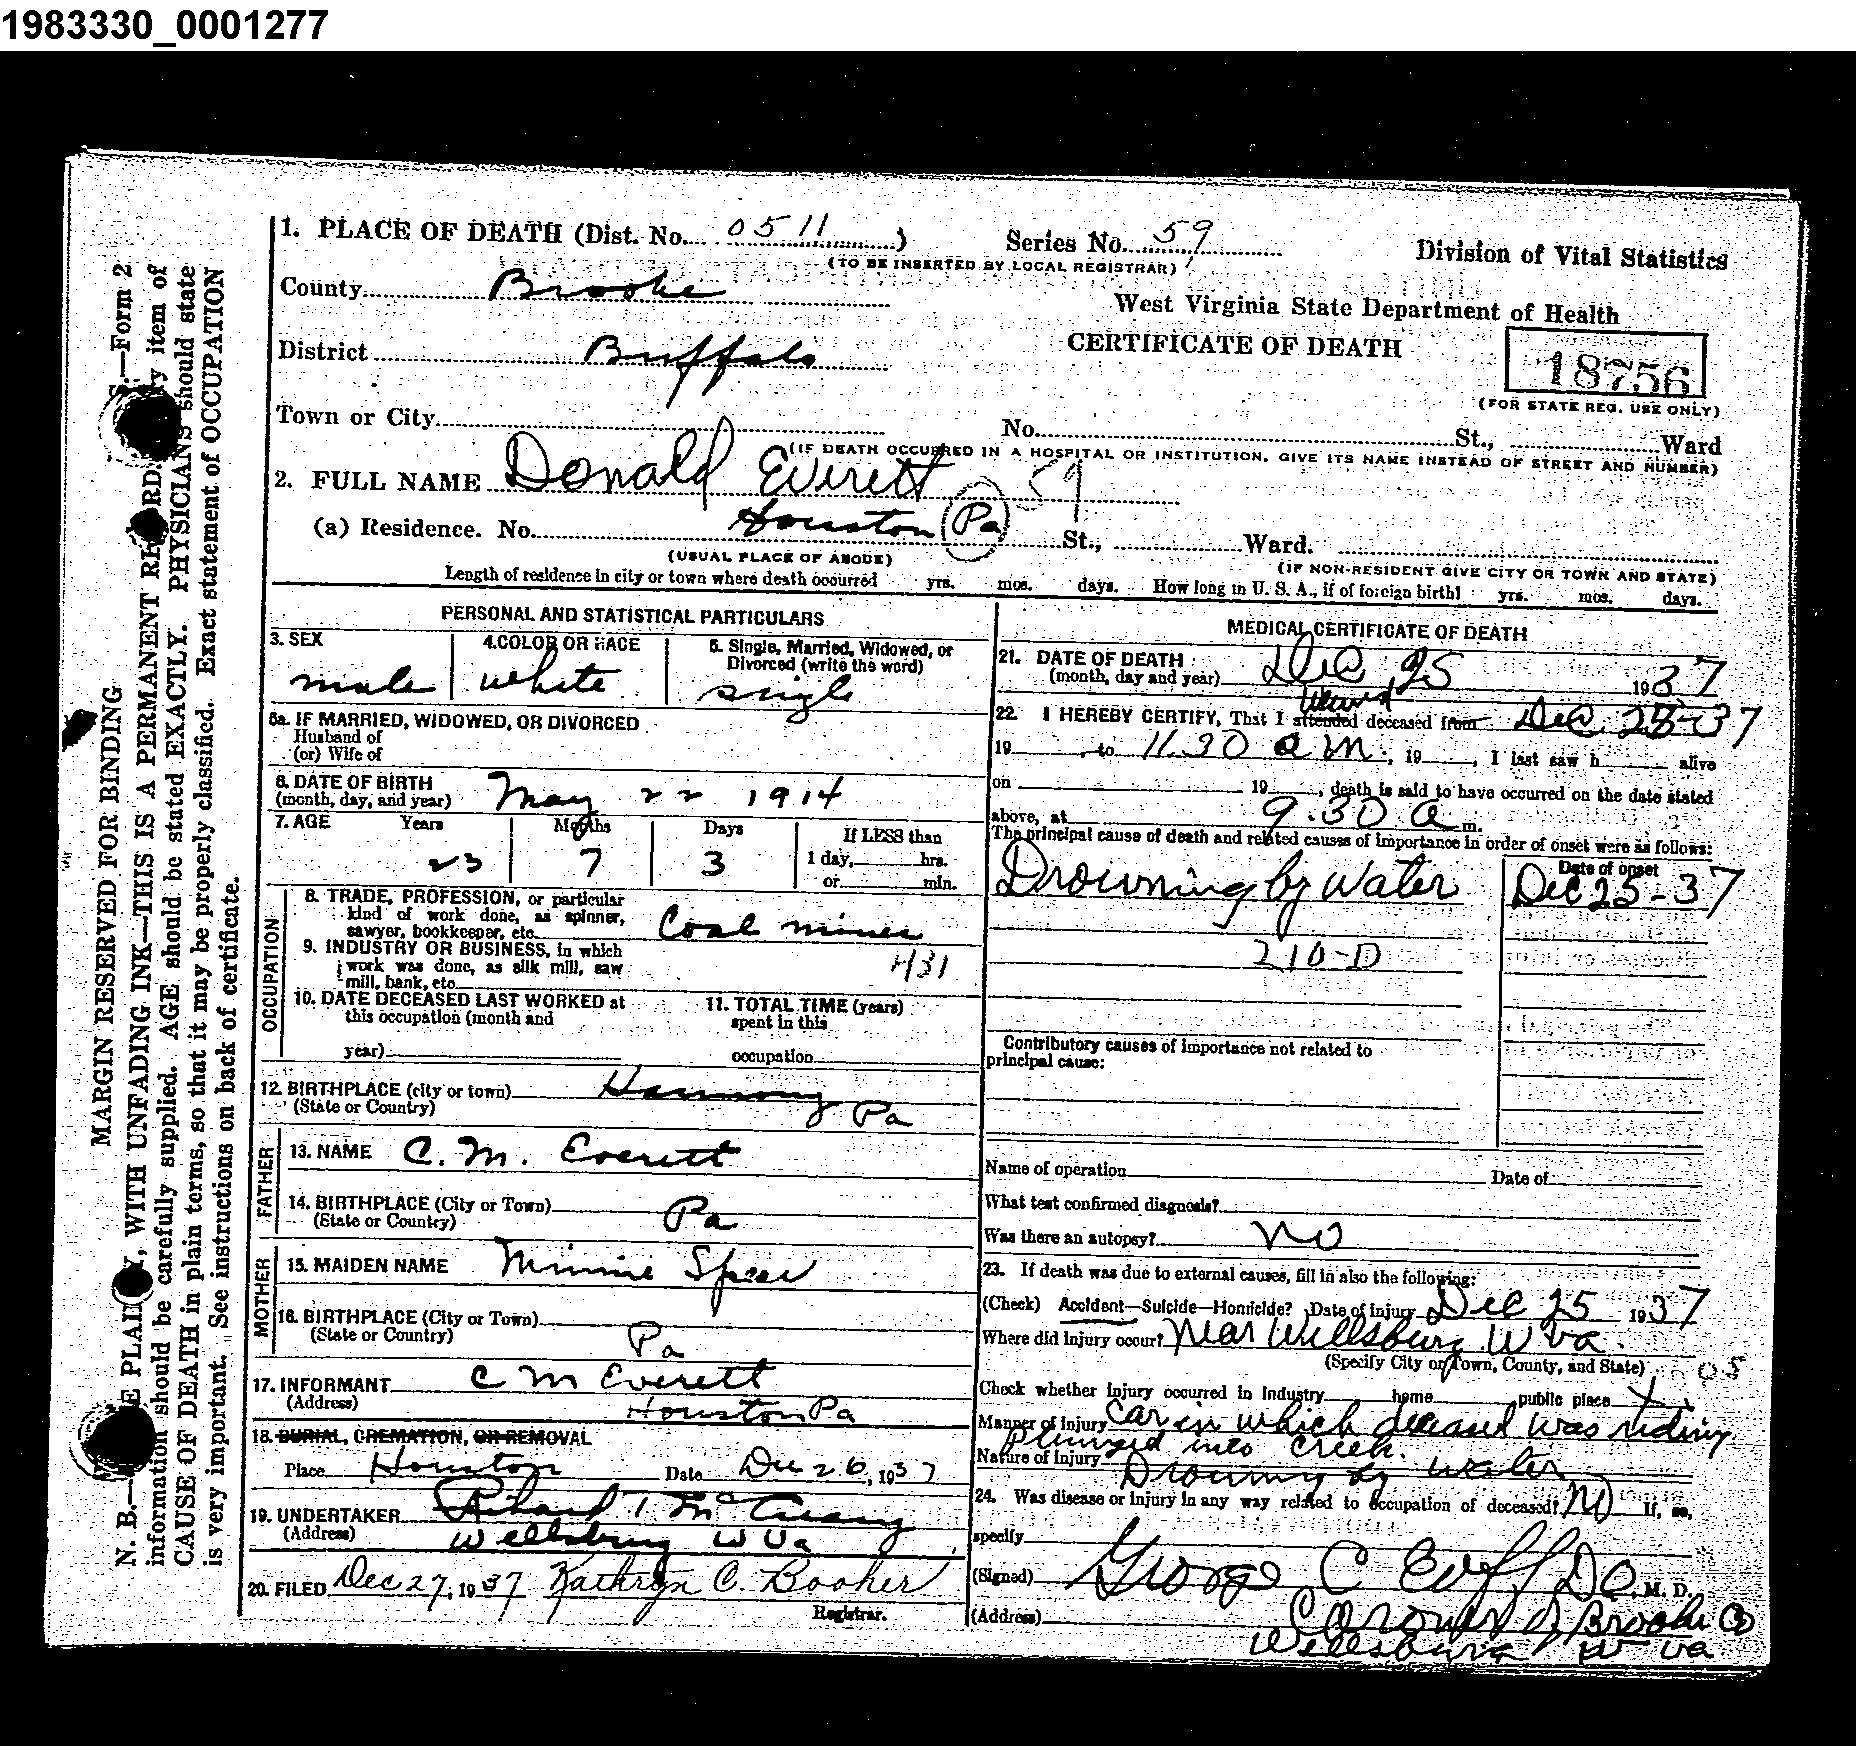 1983330_0001277
1. PLACE OF DEATH (Dist. No. 0511 ) Series No. 59
(TO BE INSERTED BY LOCAL REGISTRAR)
Division of Vital Statistics
County Brooke
West Virginia State Department of Health
District Buffalo
CERTIFICATE OF DEATH
18756
(FOR STATE REG. USE ONLY)
Town or City No. St., Ward
(IF DEATH OCCURRED IN A HOSPITAL OR INSTITUTION, GIVE ITS NAME INSTEAD OF STREET AND NUMBER)
2. FULL NAME Donald Everett 59
(a) Residence. No. Houston Pa St., Ward.
(USUAL PLACE OF ABODE) (IF NON-RESIDENT GIVE CITY OR TOWN AND STATE)
Length of residence in city or town where death occurred yrs. mos. days. How long in U. S. A., if of foreign birth? yrs. mos. days.
PERSONAL AND STATISTICAL PARTICULARS
3. SEX male
4. COLOR OR RACE white
5. Single, Married, Widowed, or Divorced (write the word) single
5a. IF MARRIED, WIDOWED, OR DIVORCED
Husband of
(or) Wife of
6. DATE OF BIRTH
(month, day, and year) May 22 1914
7. AGE Years Months Days If LESS than
23 7 3 1 day, hrs.
or min.
OCCUPATION
8. TRADE, PROFESSION, or particular
kind of work done, as spinner,
sawyer, bookkeeper, etc. Coal miner
9. INDUSTRY OR BUSINESS, in which
work was done, as silk mill, saw
mill, bank, etc.
10. DATE DECEASED LAST WORKED at
this occupation (month and
year)
11. TOTAL TIME (years)
spent in this
occupation
12. BIRTHPLACE (city or town) Harmony
(State or Country) Pa
FATHER
13. NAME C. M. Everett
14. BIRTHPLACE (City or Town)
(State or Country) Pa
MOTHER
15. MAIDEN NAME Minnie Speer
16. BIRTHPLACE (City or Town)
(State or Country) Pa
17. INFORMANT C M Everett
(Address) Houston Pa
18. BURIAL, CREMATION, OR REMOVAL
Place Houston Date Dec 26, 1937
19. UNDERTAKER
(Address) Wellsburg W Va
20. FILED Dec 27, 1937 Kathryn C. Booher
Registrar.
MEDICAL CERTIFICATE OF DEATH
21. DATE OF DEATH
(month, day and year) Dec 25 1937
22. I HEREBY CERTIFY, That I attended deceased from Dec 25-37
19 , to 11.30 a m , 19 , I last saw h alive
on 19 , death is said to have occurred on the date stated
above, at 9.30 a m.
The principal cause of death and related causes of importance in order of onset were as follows:
Date of onset
Drowning by Water Dec 25-37
210-D
Contributory causes of importance not related to
principal cause:
Name of operation Date of
What test confirmed diagnosis?
Was there an autopsy? No
23. If death was due to external causes, fill in also the following:
(Check) Accident—Suicide—Homicide? Date of injury Dec 25 1937
Where did injury occur? Near Wellsburg W Va.
(Specify City or Town, County, and State) 05
Check whether injury occurred in Industry home public place X
Manner of injury Car in which deceased was riding
plunged into Creek.
Nature of injury Drowning by water
24. Was disease or injury in any way related to occupation of deceased? No If, so,
specify
(Signed) George C DO M. D.
(Address) Coroner of Brooke Co
Wellsburg W Va
MARGIN RESERVED FOR BINDING
N. B.— PLAINLY, WITH UNFADING INK—THIS IS A PERMANENT item of
information should be carefully supplied. AGE should be stated EXACTLY. PHYSICIANS should state
CAUSE OF DEATH in plain terms, so that it may be properly classified. Exact statement of OCCUPATION
is very important. See instructions on back of certificate.
—Form 2